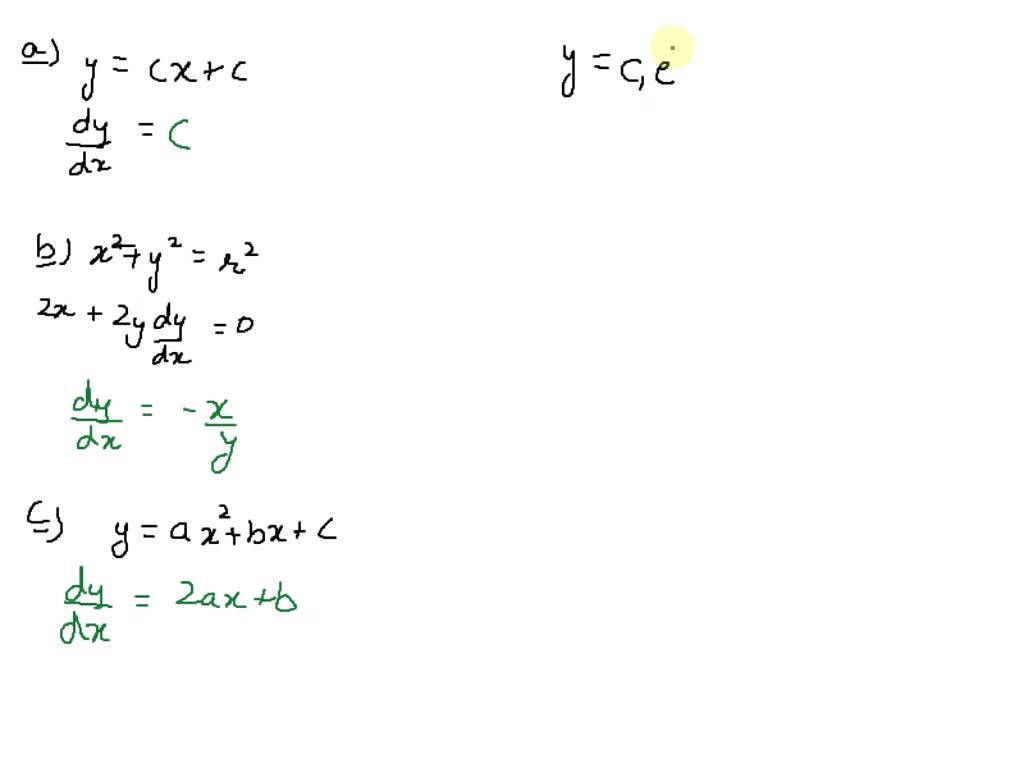 a) y = cx + c
dy/dx = c
b) x² + y² = r²
2x + 2y dy/dx = 0
dy/dx = - x/y
c) y = ax² + bx + c
dy/dx = 2ax + b
y = c₁e